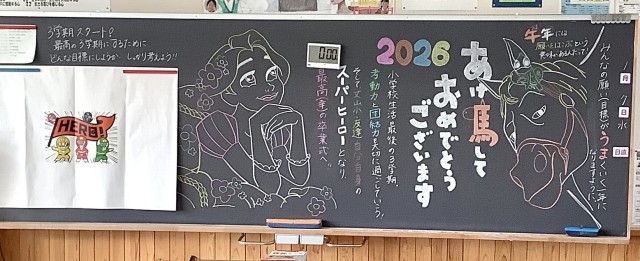 3学期スタート?
最高の3学期にするために
どんな目標にしようか しっかり考えよう!!
HERO!
000
2026
あけ馬して
おめでとう
ございます
小学校生活最後の3学期、
考動力と団結力を大切に過ごしていこう!
そして
スーパーヒーローとなり
最高の卒業式へ。
午年には
みんなの願い(目標)がうまくいく一年に
なりますように。
1
月
7
日
水
日直